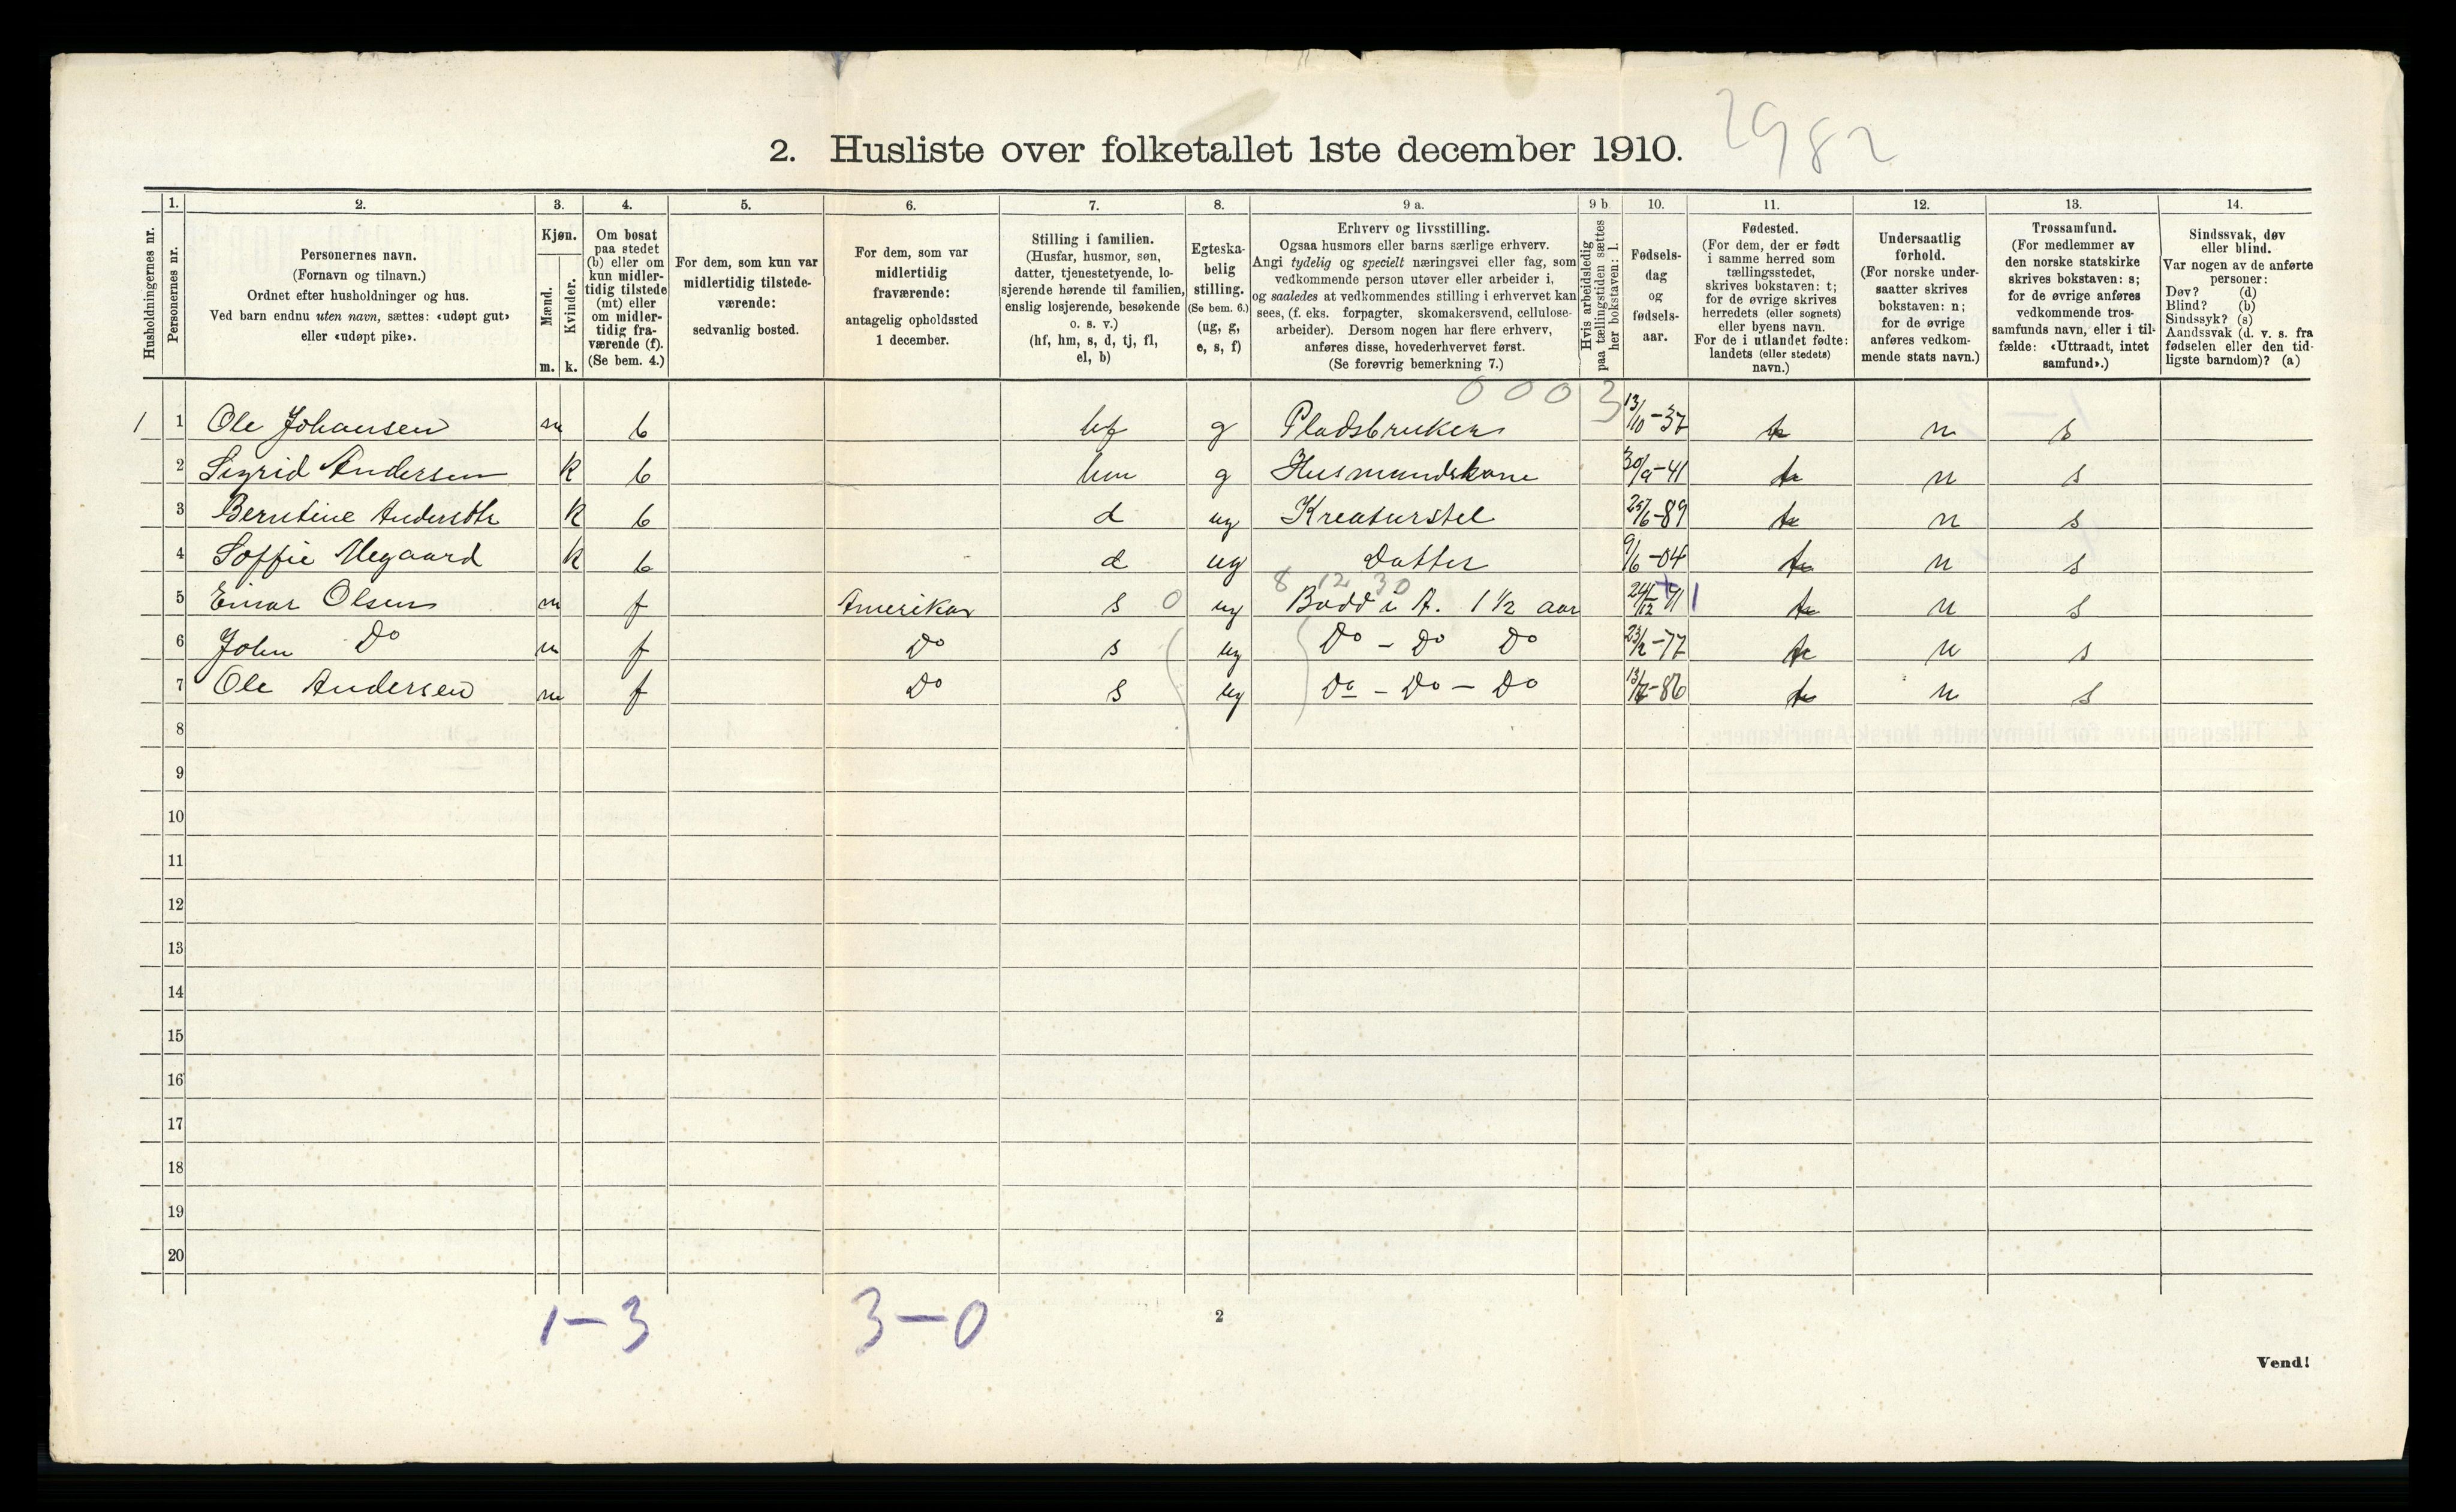 2982
2. Husliste over folketallet 1ste december 1910.
Husholdningernes nr.
1. Personernes nr.
2. Personernes navn.
(Fornavn og tilnavn.)
Ordnet efter husholdninger og hus.
Ved barn endnu uten navn, sættes: «udøpt gut»
eller «udøpt pike».
3. Kjøn.
Mænd. m.
Kvinder. k.
4. Om bosat
paa stedet
(b) eller om
kun midler-
tidig tilstede
(mt) eller
om midler-
tidig fra-
værende (f).
(Se bem. 4.)
5. For dem, som kun var
midlertidig tilstede-
værende:
sedvanlig bosted.
6. For dem, som var
midlertidig
fraværende:
antagelig opholdssted
1 december.
7. Stilling i familien.
(Husfar, husmor, søn,
datter, tjenestetyende, lo-
sjerende hørende til familien,
enslig losjerende, besøkende
o. s. v.)
(hf, hm, s, d, tj, fl,
el, b)
8. Egteska-
belig
stilling.
(Se bem. 6.)
(ug, g,
e, s, f)
9 a. Erhverv og livsstilling.
Ogsaa husmors eller barns særlige erhverv.
Angi tydelig og specielt næringsvei eller fag, som
vedkommende person utøver eller arbeider i,
og saaledes at vedkommendes stilling i erhvervet kan
sees, (f. eks. forpagter, skomakersvend, cellulose-
arbeider). Dersom nogen har flere erhverv,
anføres disse, hovederhvervet først.
(Se forøvrig bemerkning 7.)
9 b. Hvis arbeidsledig
paa tællingstiden sættes
her bokstaven: l.
10. Fødsels-
dag
og
fødsels-
aar.
11. Fødested.
(For dem, der er født
i samme herred som
tællingsstedet,
skrives bokstaven: t;
for de øvrige skrives
herredets (eller sognets)
eller byens navn.
For de i utlandet fødte:
landets (eller stedets)
navn.)
12. Undersaatlig
forhold.
(For norske under-
saatter skrives
bokstaven: n;
for de øvrige
anføres vedkom-
mende stats navn.)
13. Trossamfund.
(For medlemmer av
den norske statskirke
skrives bokstaven: s;
for de øvrige anføres
vedkommende tros-
samfunds navn, eller i til-
fælde: «Uttraadt, intet
samfund».)
14. Sindssvak, døv
eller blind.
Var nogen av de anførte
personer:
Døv? (d)
Blind? (b)
Sindssyk? (s)
Aandssvak (d. v. s. fra
fødselen eller den tid-
ligste barndom)? (a)
000 3
1 1 Ole Johansen m b hf g Pladsbruker 13/10-37 t n s
2 Sigrid Andersen k b hm g Husmandskone 30/9-41 t n s
3 Berntine Andersdtr k b d ug Kreaturstel 25/6-89 t n s
4 Soffie Megaard k b d ug Datter 9/6-04 t n s
8 12 30
5 Einar Olsen m f Amerika s 0 ug Bodd i A. 1 1/2 aar 24/12 91 1 t n s
6 John Do m f Do s ug Do - Do Do 23/2-77 t n s
7 Ole Andersen m f Do s ug Do - Do - Do -86 t n s
8
9
10
11
12
13
14
15
16
17
18
19
20
1-3 3-0
2
Vend!